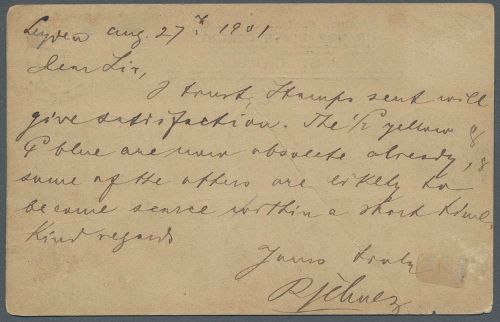 Leyden Aug. 27th 1901
Dear Sir,
I trust, Stamps sent will
give satisfaction. The ½ yellow
& blue are now obsolete already, &
some of the others are likely to
become scarce within a short time.
Kind regards
Yours truly